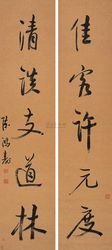 佳客许元度
清谈支道林
陈鸿寿